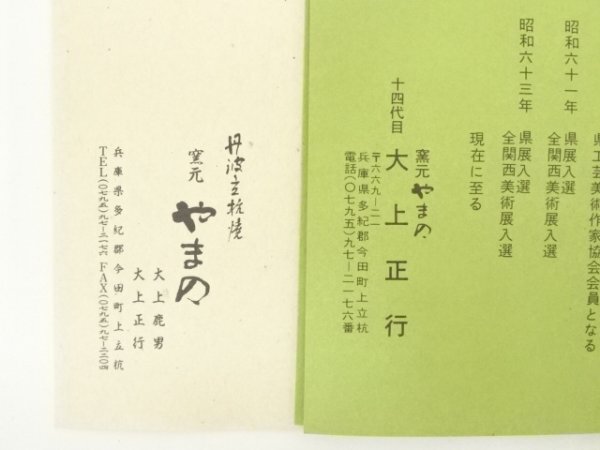 県工芸美術作家協会会員となる
昭和六十一年 県展入選
全関西美術展入選
昭和六十三年 県展入選
全関西美術展入選
現在に至る
窯元 やまの
十四代目 大上正行
〒六六九ー二一
兵庫県多紀郡今田町上立杭
電話(〇七九五)九七ー二一七六番
丹波立杭焼
窯元 やまの
大上鹿男
大上正行
兵庫県多紀郡今田町上立杭
TEL(〇七九五)九七ー二一七六 FAX(〇七九五)九七ー二二〇四